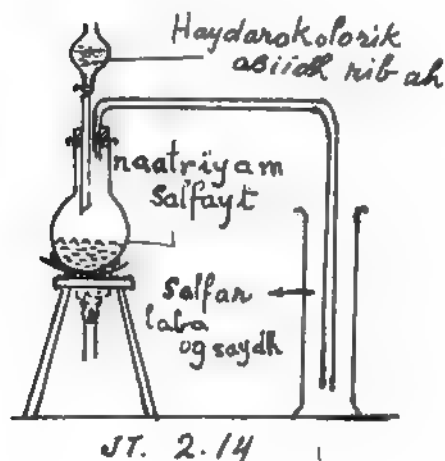 Haydarokolorik
asiidh rib ah
naatriyam
Salfayt
Salfar
laba
ogsaydh
JT. 2.14